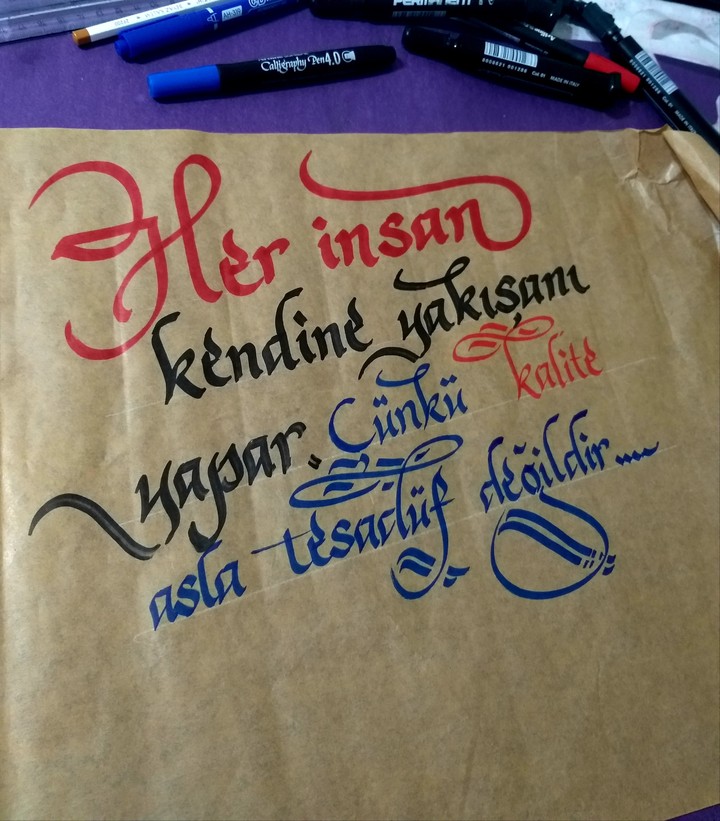 PERMANENT
Calligraphy Pen 4.0
MADE IN ITALY
Her insan
kendine yakışanı
yapar. Çünkü kalite
asla tesadüf değildir....